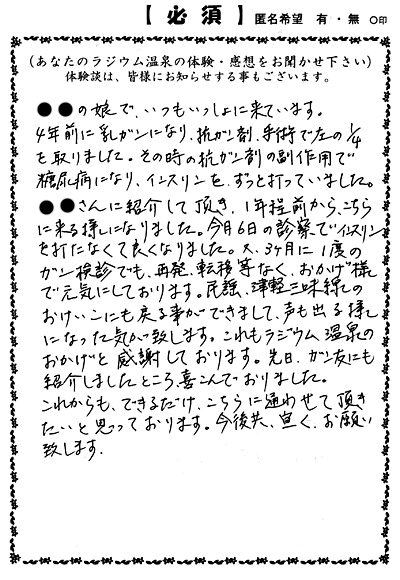 【 必 須 】 匿名希望 有・無 ○印
(あなたのラジウム温泉の体験・感想をお聞かせ下さい)
体験談は、皆様にお知らせする事もございます。
●●の娘で、いつもいっしょに来ています。
4年前に乳ガンになり、抗ガン剤、手術で左の1/4
を取りました。その時の抗ガン剤の副作用で
糖尿病になり、インスリンを、ずっと打っていました。
●●さんに紹介して頂き、1年程前から、こちら
に来る様になりました。今月6日の診察でインスリン
を打たなくて良くなりました。又、3ヶ月に1度の
ガン検診でも、再発、転移等なく、おかげ様
で元気にしております。民謡、津軽三味線の
おけいこにも戻る事ができまして、声も出る様
になった気が致します。これもラジウム温泉の
おかげと感謝しております。先日、ガン友にも
紹介しましたところ、喜こんでおりました。
これからも、できるだけ、こちらに通わせて頂き
たいと思っております。今後共、宜く、お願い
致します.